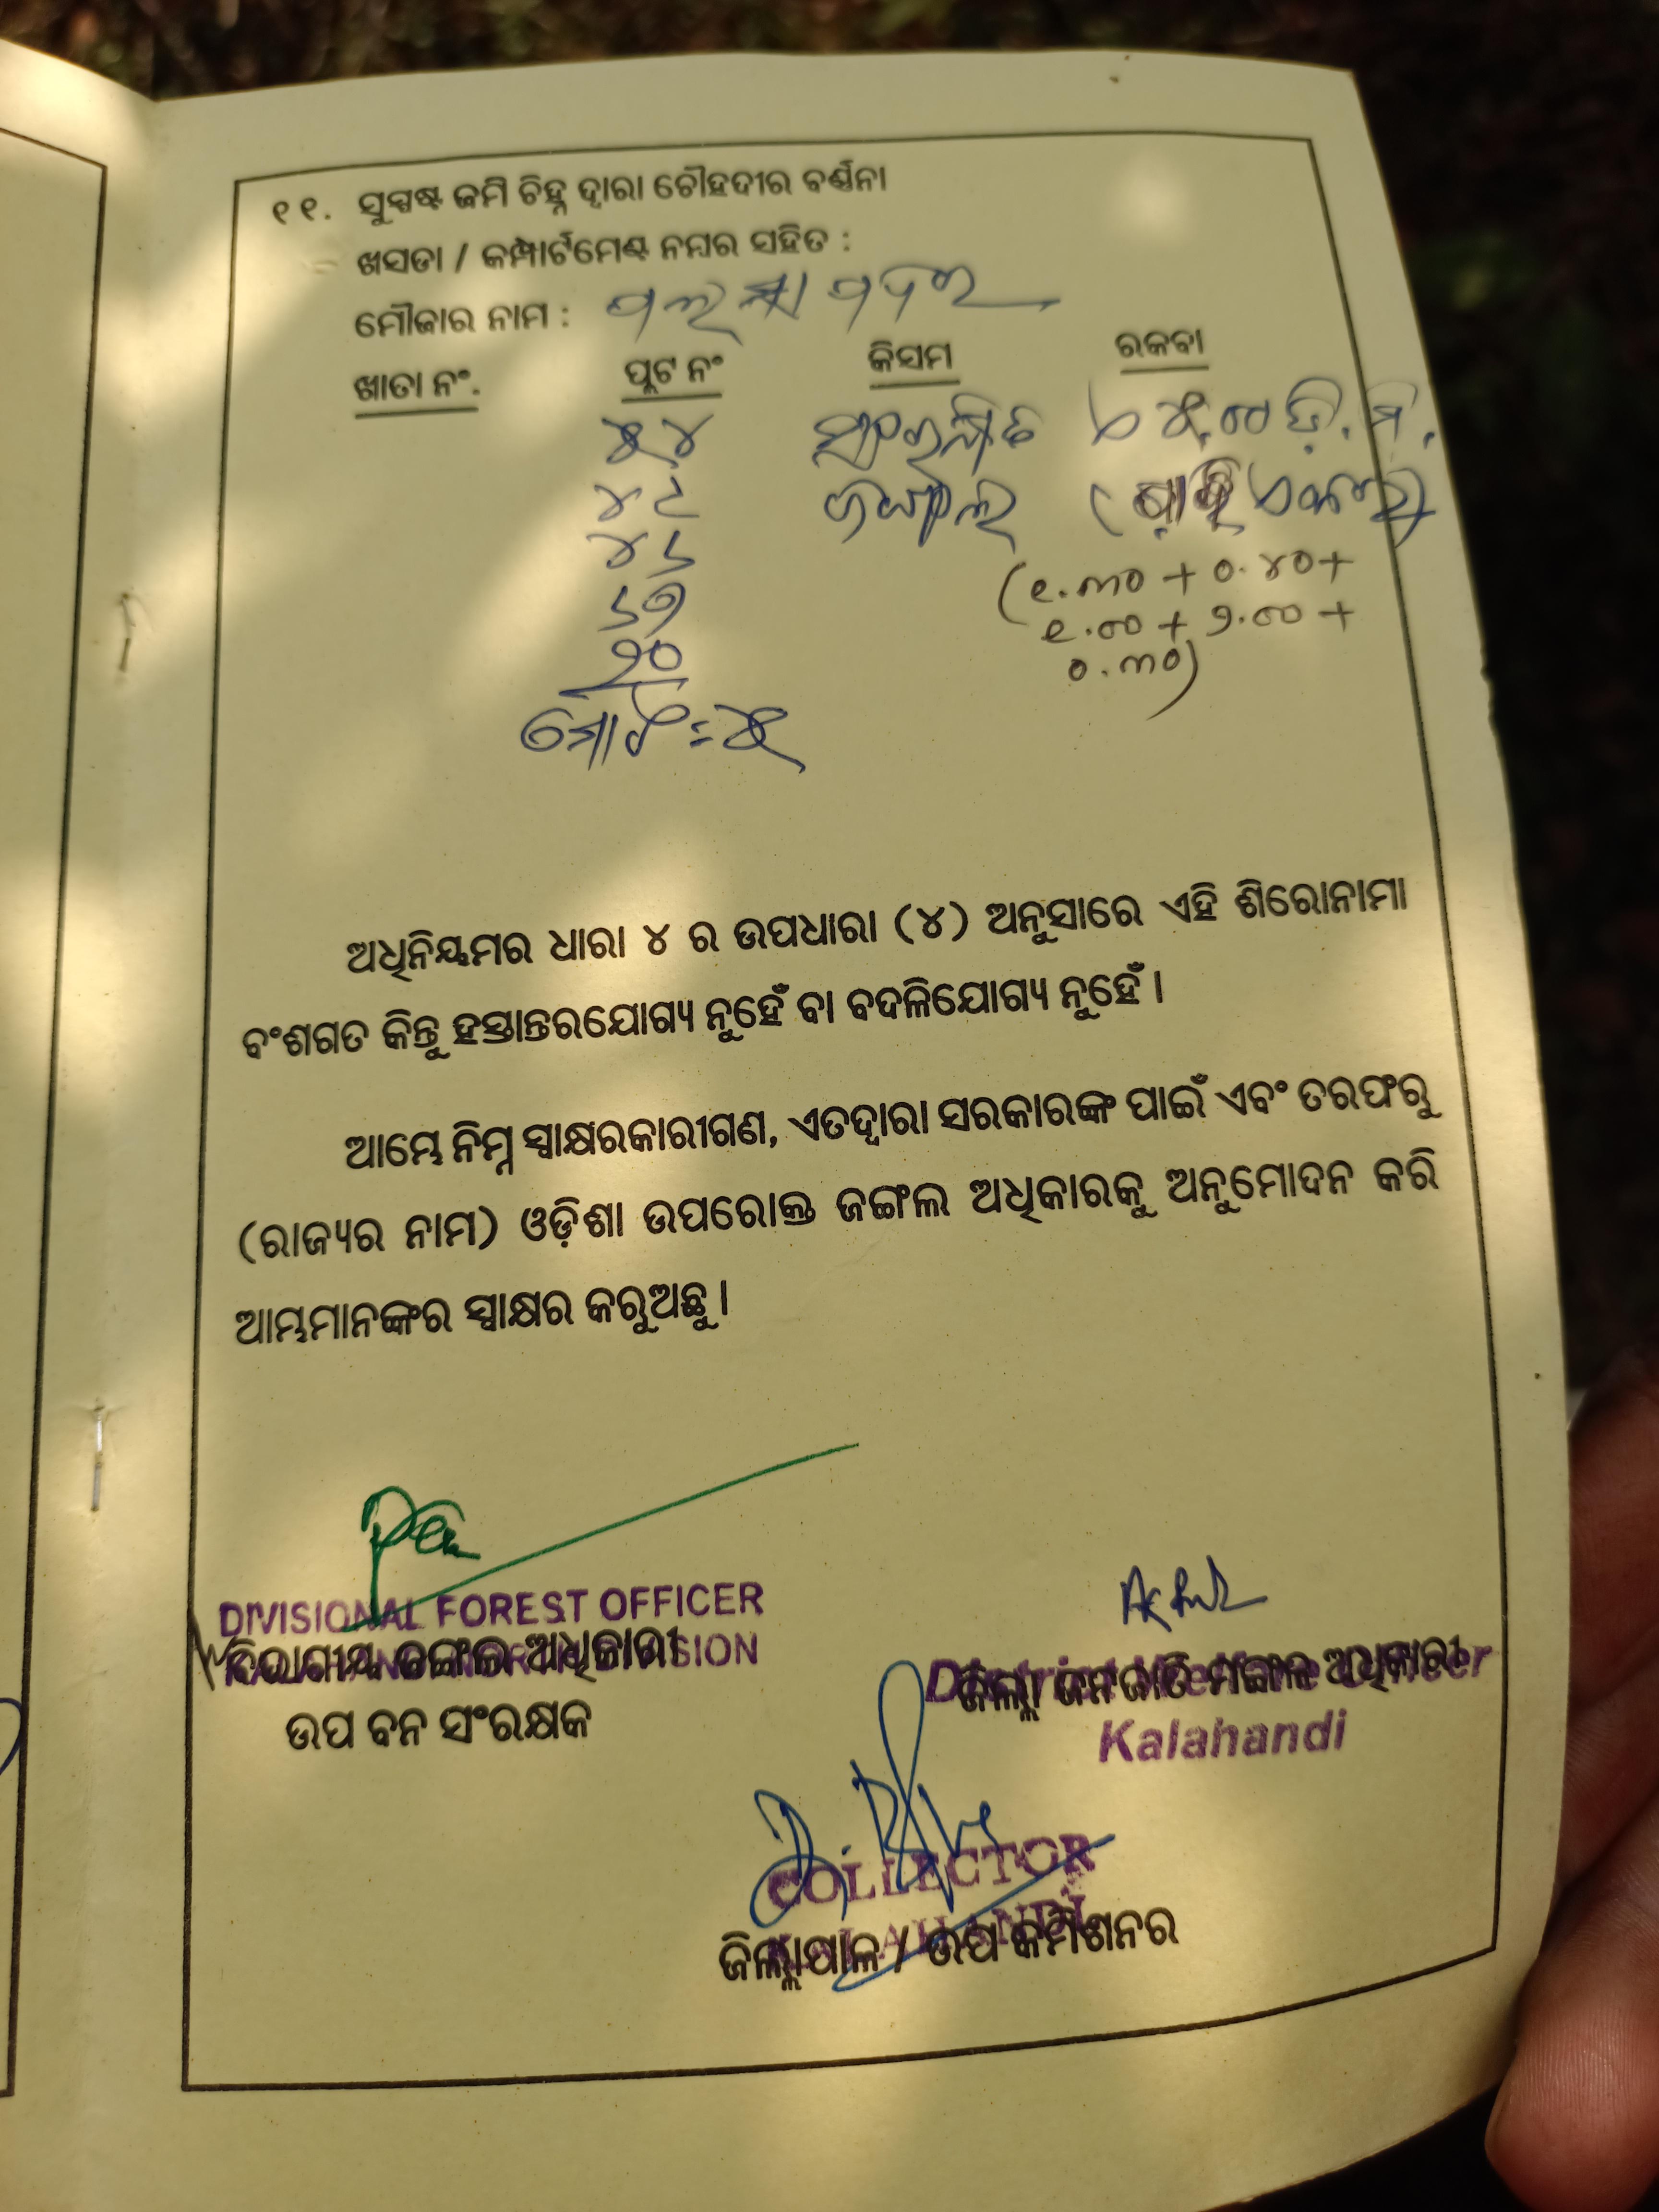 ୧୧. ସୁସ୍ପଷ୍ଟ ଜମି ଚିହ୍ନ ଦ୍ୱାରା ଚୌହଦୀର ବର୍ଣ୍ଣନା
ଖସଡା / କମ୍ପାର୍ଟମେଣ୍ଟ ନମ୍ବର ସହିତ :
ମୌଜାର ନାମ :
ଖାତା ନଂ. ପ୍ଲଟ ନଂ କିସମ ରକବା
୫୪
ଜଙ୍ଗଲ
(୧.୩୦ + ୦.୪୦ +
୧.୦୦ + ୨.୦୦ +
୦.୩୦)
୨୦
ମୋଟ = ୫
ଅଧିନିୟମର ଧାରା ୪ ର ଉପଧାରା (୪) ଅନୁସାରେ ଏହି ଶିରୋନାମା
ବଂଶଗତ କିନ୍ତୁ ହସ୍ତାନ୍ତରଯୋଗ୍ୟ ନୁହେଁ ବା ବଦଳିଯୋଗ୍ୟ ନୁହେଁ ।
ଆମ୍ଭେ ନିମ୍ନ ସ୍ୱାକ୍ଷରକାରୀଗଣ, ଏତଦ୍ୱାରା ସରକାରଙ୍କ ପାଇଁ ଏବଂ ତରଫରୁ
(ରାଜ୍ୟର ନାମ) ଓଡ଼ିଶା ଉପରୋକ୍ତ ଜଙ୍ଗଲ ଅଧିକାରକୁ ଅନୁମୋଦନ କରି
ଆମ୍ଭମାନଙ୍କର ସ୍ୱାକ୍ଷର କରୁଅଛୁ ।
DIVISIONAL FOREST OFFICER
ବିଭାଗୀୟ ଜଙ୍ଗଲ ଅଧିକାରୀ
ଉପ ବନ ସଂରକ୍ଷକ
District Welfare Officer
ଜିଲ୍ଲା ଜନଜାତି ମଙ୍ଗଳ ଅଧିକାରୀ
Kalahandi
COLLECTOR
KALAHANDI
ଜିଲ୍ଲାପାଳ / ଉପ କମିଶନର